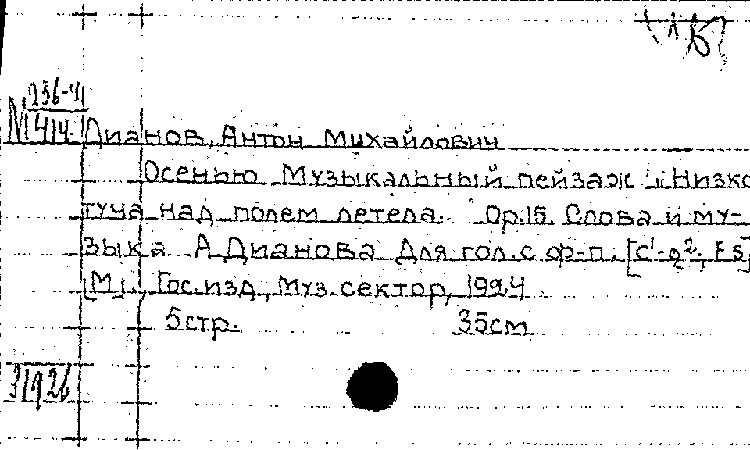 236-4
N 1414
Дианов, Антон Михайлович
Осенью Музыкальный пейзаж „Низко
туча над полем летела." Ор.15. Слова и му-
зыка А Дианова Для гол. с ф-п. [c¹-g²,
[М]. Гос. изд, Муз. сектор, 1924
5стр. 35см
31926